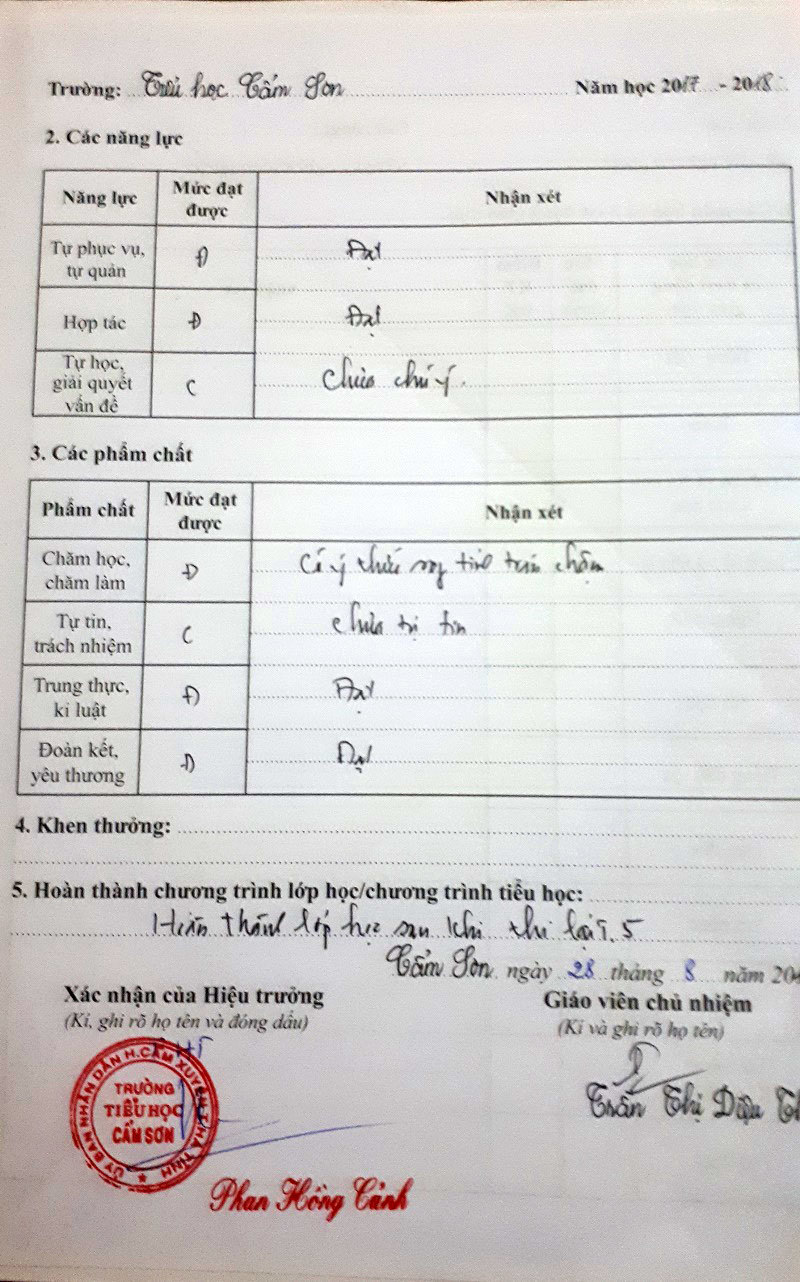 Trường: Tiểu học Cẩm Sơn Năm học 2017 - 2018
2. Các năng lực
Năng lực Mức đạt được Nhận xét
Tự phục vụ, tự quản Đ Đạt
Hợp tác Đ Đạt
Tự học, giải quyết vấn đề C Chưa chú ý.
3. Các phẩm chất
Phẩm chất Mức đạt được Nhận xét
Chăm học, chăm làm Đ Có ý thức tiếp chậm
Tự tin, trách nhiệm C chưa tự tin
Trung thực, kỉ luật Đ Đạt
Đoàn kết, yêu thương Đ Đạt
4. Khen thưởng:
5. Hoàn thành chương trình lớp học/chương trình tiểu học:
Hoàn thành lớp học sau khi thi lại
Cẩm Sơn ngày 28 tháng 8 năm 20
Xác nhận của Hiệu trưởng Giáo viên chủ nhiệm
(Kí, ghi rõ họ tên và đóng dấu) (Kí và ghi rõ họ tên)
ỦY BAN NHÂN DÂN H.CẨM XUYÊN T.HÀ TĨNH
TRƯỜNG
TIỂU HỌC
CẨM SƠN
Trần Thị Diệu
Phan Hồng Cảnh